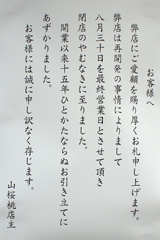 お客様へ
弊店にご愛顧を賜り厚くお礼申し上げます。
弊店は再開発の事情によりまして
八月三十日を最終営業日とさせて頂き
閉店のやむなきに至りました。
開業以来十五年ひとかたならぬお引き立てに
あずかりました。
お客様には誠に申し訳なく存じます。
山桜桃店主